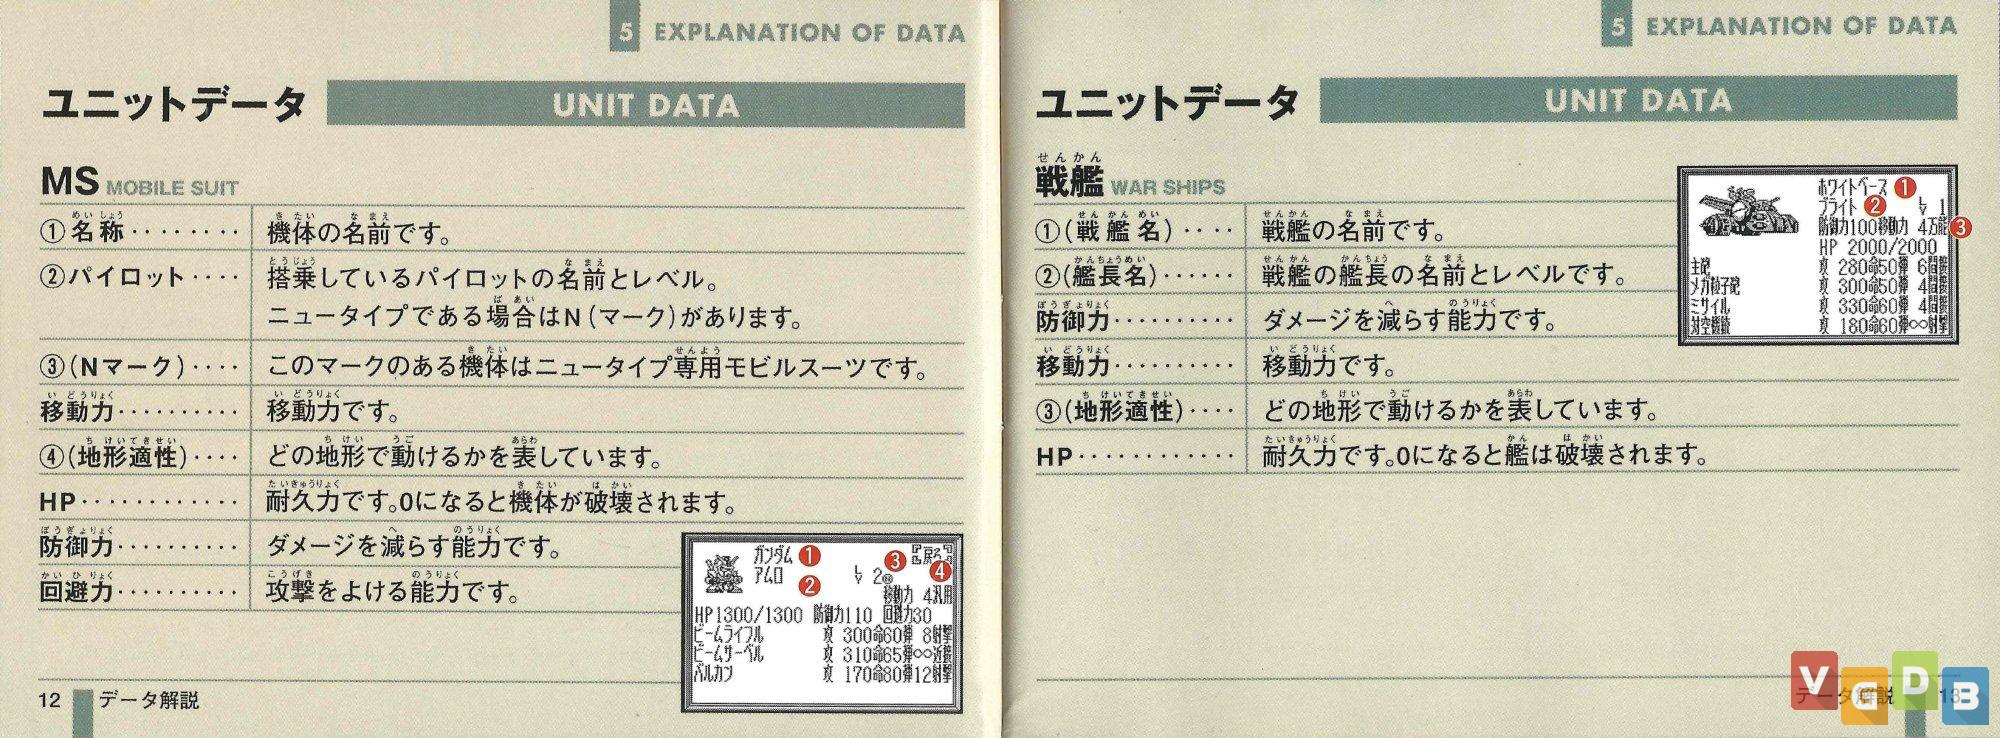 5 EXPLANATION OF DATA
ユニットデータ UNIT DATA
MS MOBILE SUIT
①名称‥‥‥‥ 機体の名前です。
②パイロット‥‥ 搭乗しているパイロットの名前とレベル。
ニュータイプである場合はN(マーク)があります。
③(Nマーク)‥‥ このマークのある機体はニュータイプ専用モビルスーツです。
移動力‥‥‥‥‥ 移動力です。
④(地形適性)‥‥ どの地形で動けるかを表しています。
HP‥‥‥‥‥‥ 耐久力です。0になると機体が破壊されます。
防御力‥‥‥‥‥ ダメージを減らす能力です。
回避力‥‥‥‥‥ 攻撃をよける能力です。
ガンダム 1 3 『戻る』
アムロ 2 Lv 2Ⓝ 4
移動力 4汎用
HP1300/1300 防御力110 回避力30
ビームライフル 攻 300命60弾 8射撃
ビームサーベル 攻 310命65弾∞近接
バルカン 攻 170命80弾12射撃
12 データ解説
5 EXPLANATION OF DATA
ユニットデータ UNIT DATA
せんかん
戦艦 WAR SHIPS
①(戦艦名)‥‥ 戦艦の名前です。
②(艦長名)‥‥‥ 戦艦の艦長の名前とレベルです。
防御力‥‥‥‥‥ ダメージを減らす能力です。
移動力‥‥‥‥‥ 移動力です。
③(地形適性)‥‥ どの地形で動けるかを表しています。
HP‥‥‥‥‥‥ 耐久力です。0になると艦は破壊されます。
ホワイトベース 1
ブライト 2 Lv 1
防御力100移動力 4万能 3
HP 2000/2000
主砲 攻 280命50弾 6間接
メガ粒子砲 攻 300命50弾 4間接
ミサイル 攻 330命60弾 4間接
対空機銃 攻 180命60弾∞射撃
データ解説 13
VGDB